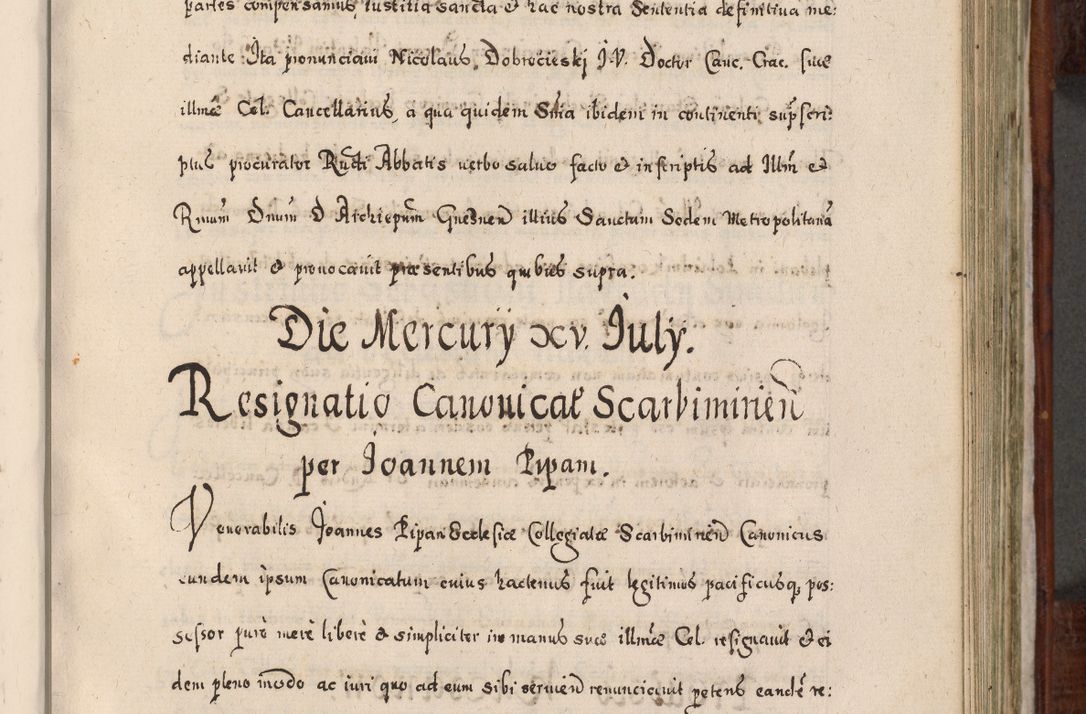 partes compensamus, iustitia sancta et hac nostra Sententia definitiva me:
diante Ita pronunciavi Nicolaus Dobrocieskj I.V. Doctor Canc. Crac. suæ
illmæ Cel. Cancellarius, a qua quidem Snia ibidem in continenti supscri:
ptus procurator Rndi Abbatis verbo salvo facto et in scriptis ad Illm et
Rmum Dnum D Archiepum Gnesnen illius Sanctam Sedem Metropolitanã
appellavit et provocavit præsentibus quibus supra.
Die Mercurÿ xv. Julÿ.
Resignatio Canonicat Scarbimirien
per Joannem Pipam.
Venerabilis Joannes Pipan Ecclesiæ Collegiatæ Scarbimirien Canonicus
eundem ipsum Canonicatum cuius hactenus fuit legitimus pacificusq, pos:
sessor purè merè liberè et simpliciter in manus suæ illmæ Cel. resignavit et ei
dem pleno modo ac iuri quo ad eum sibi servien renunciavit petens eandē re: